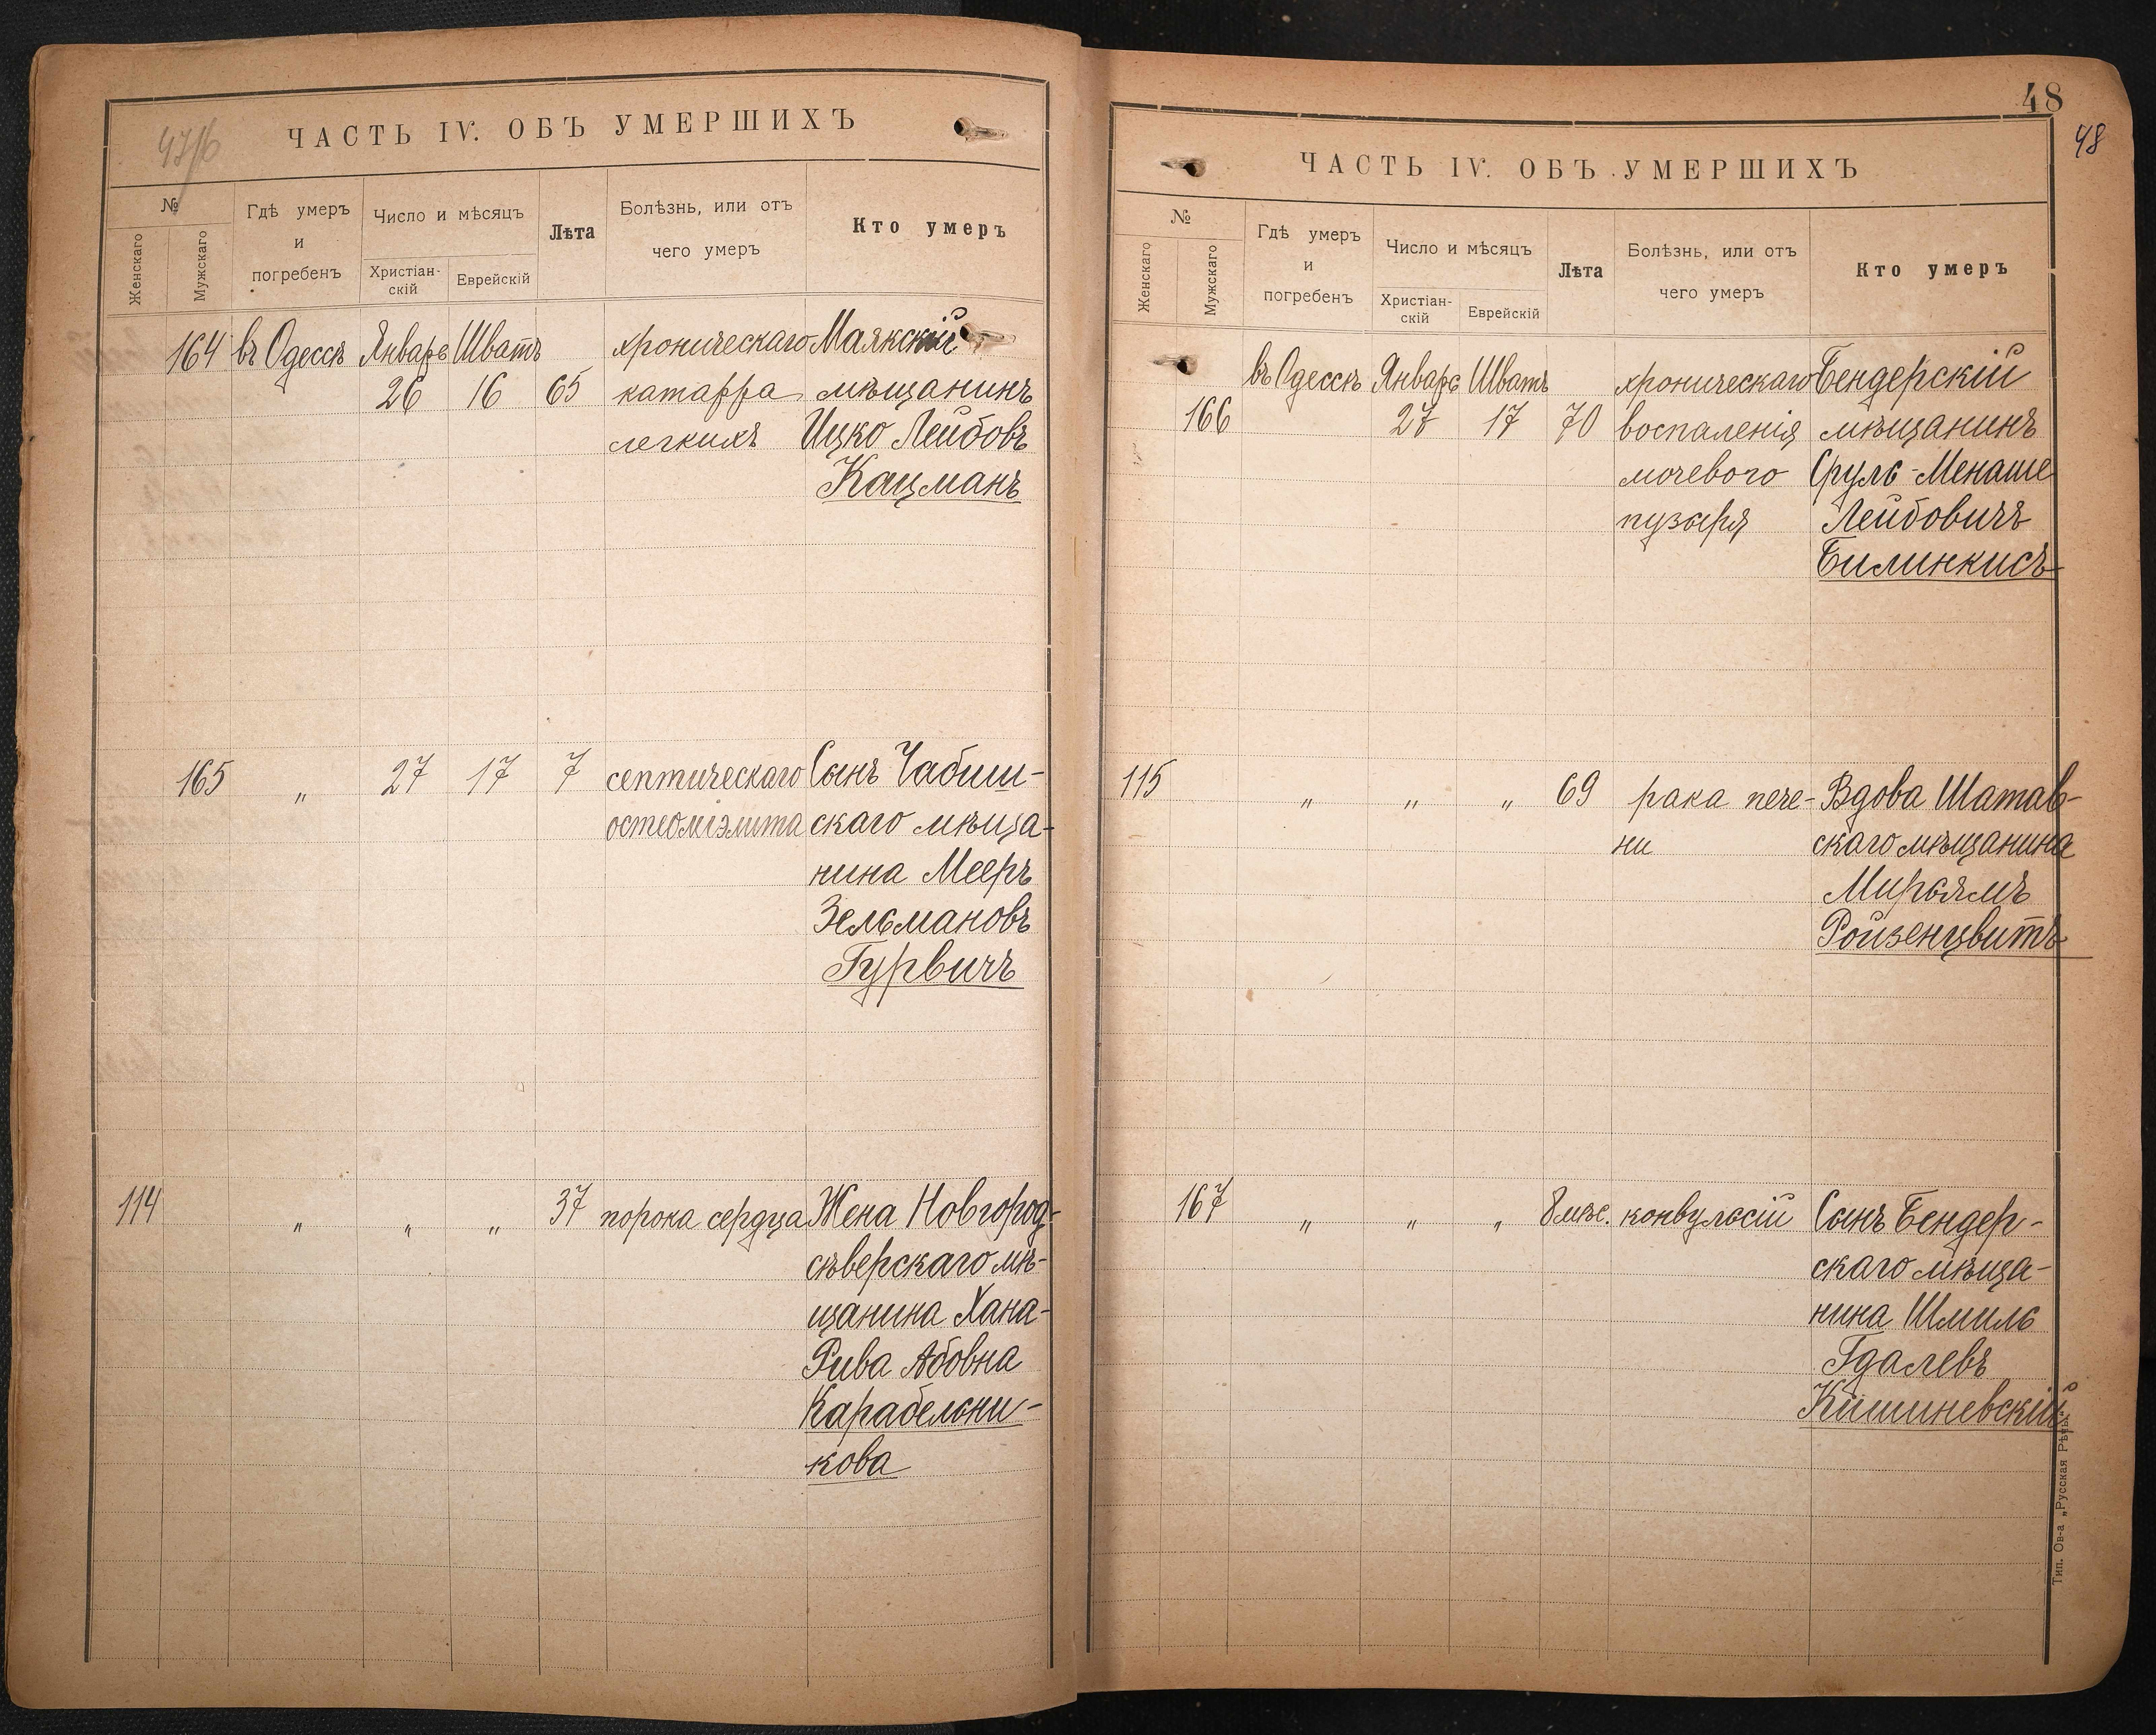 47/б
ЧАСТЬ IV. ОБЪ УМЕРШИХЪ
№
Женскаго
Мужскаго
Гдѣ умеръ
и
погребенъ
Число и мѣсяцъ
Христіан-
скій
Еврейскій
Лѣта
Болѣзнь, или отъ
чего умеръ
Кто умеръ
164 въ Одессѣ Январь Шватъ хроническаго Маякскій
26 16 65 катарра мѣщанинъ
легкихъ Ицко Лейбовъ
Кацманъ
165 " 27 17 7 септическаго Сынъ Чабиш-
остеоміэлита скаго мѣща-
нина Мееръ
Зельмановъ
Гурвичъ
114 " " " 37 порока сердца Жена Новгород-
сѣверскаго мѣ-
щанина Хана-
Рива Абовна
Карабельни-
кова
48
48
ЧАСТЬ IV. ОБЪ УМЕРШИХЪ
№
Женскаго
Мужскаго
Гдѣ умеръ
и
погребенъ
Число и мѣсяцъ
Христіан-
скій
Еврейскій
Лѣта
Болѣзнь, или отъ
чего умеръ
Кто умеръ
въ Одессѣ Январь Шватъ хроническаго Бендерскій
166 27 17 70 воспаленія мѣщанинъ
мочевого Сруль-Менаше
пузыря Лейбовичъ
Билинкисъ
115 " " " 69 рака пече- Вдова Шатав-
ни скаго мѣщанина
Мирьямъ
Ройзенцвитъ
167 " " " 8 мѣс. конвульсій Сынъ Бендер-
скаго мѣща-
нина Шмиль
Гдалевъ
Кишиневскій
Тип. Ов-а „Русская Рѣчь"